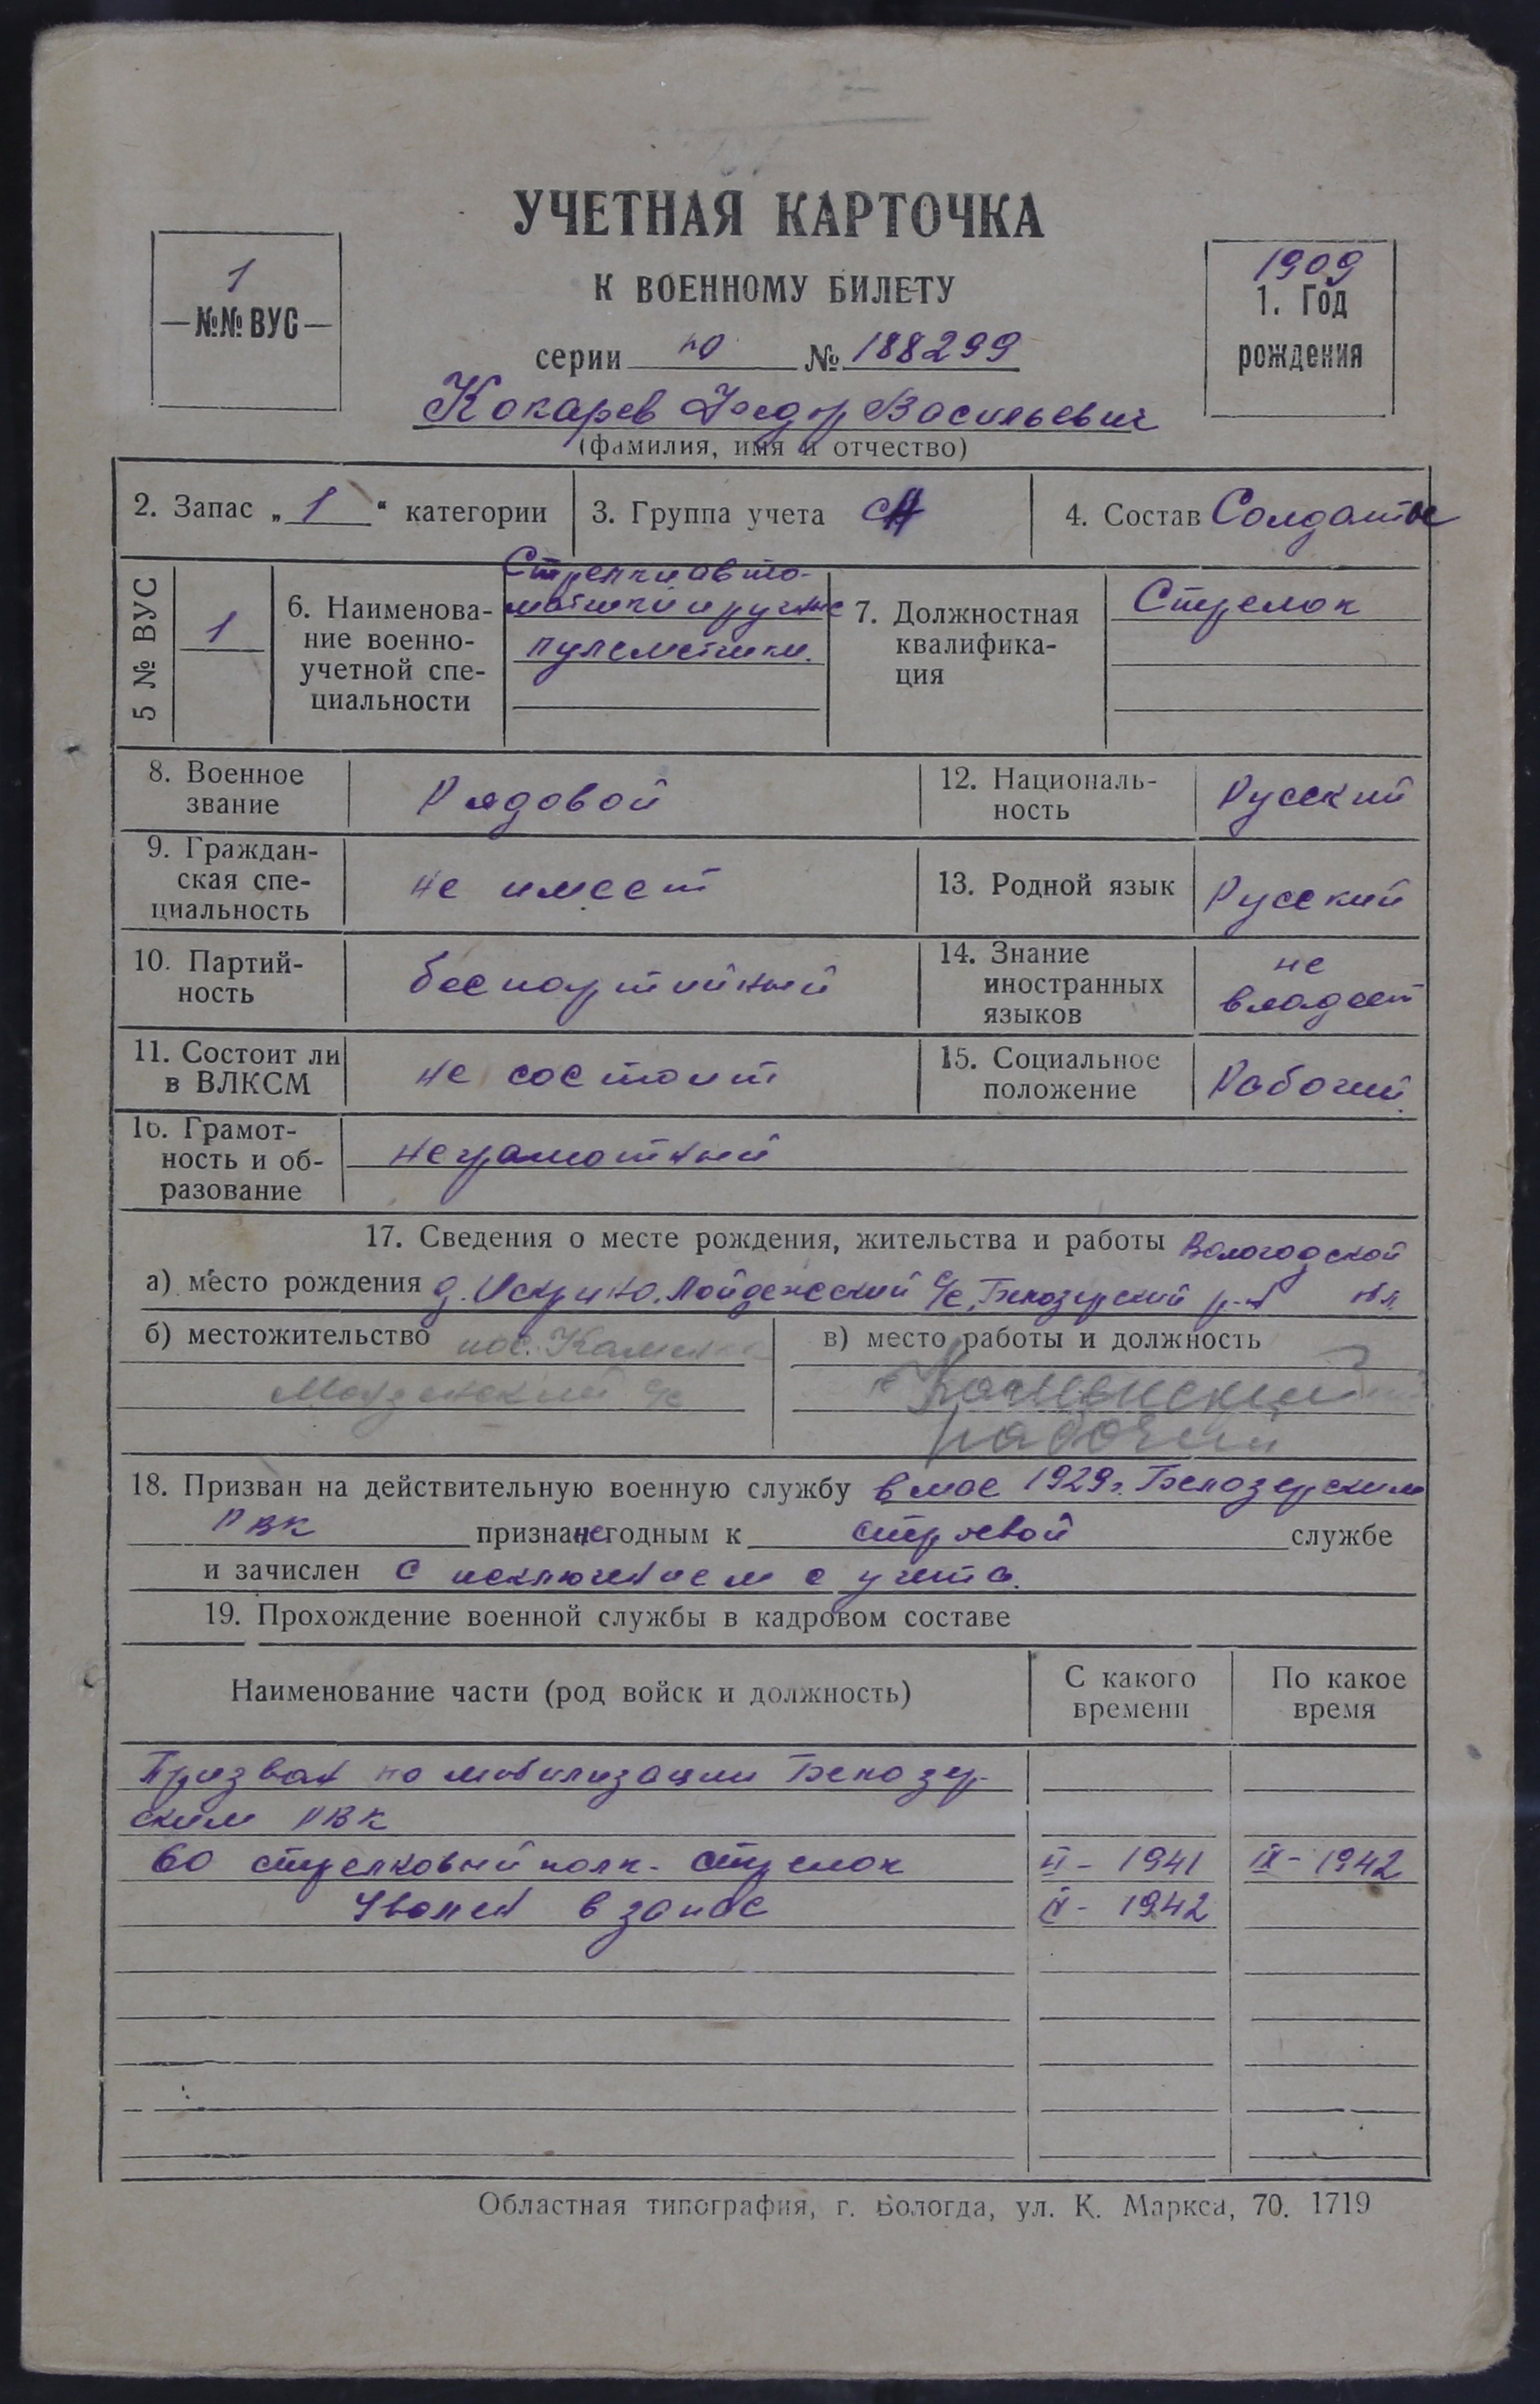 УЧЕТНАЯ КАРТОЧКА
К ВОЕННОМУ БИЛЕТУ
1
№№ ВУС
1909
1. Год
рождения
серии № 188299
Кокарев Федор Васильевич
(фамилия, имя и отчество)
2. Запас „ 1 “ категории
3. Группа учета СА
4. Состав Солдаты
5 № ВУС
1
6. Наименова-
ние военно-
учетной спе-
циальности
Стрелки авто-
матчики и ручные
пулеметчики.
7. Должностная
квалифика-
ция
Стрелок
8. Военное
звание
Рядовой
12. Националь-
ность
Русский
9. Граждан-
ская спе-
циальность
не имеет
13. Родной язык
Русский
10. Партий-
ность
беспартийный
14. Знание
иностранных
языков
не
владеет
11. Состоит ли
в ВЛКСМ
не состоит
15. Социальное
положение
Рабочий
16. Грамот-
ность и об-
разование
неграмотный
17. Сведения о месте рождения, жительства и работы Вологодской
а) место рождения д. с/с, Белозерский р-н обл.
б) местожительство пос.
с/с
в) место работы и должность
рабочий
18. Призван на действительную военную службу в мае 1929г. Белозерским
РВК признан негодным к строевой службе
и зачислен с исключением с учета.
19. Прохождение военной службы в кадровом составе
Наименование части (род войск и должность)
С какого
времени
По какое
время
Призван по мобилизации Белозер-
ским РВК
60 стрелковый полк - стрелок 1941 IX - 1942
Уволен в запас 1942
Областная типография, г. Вологда, ул. К. Маркса, 70. 1719